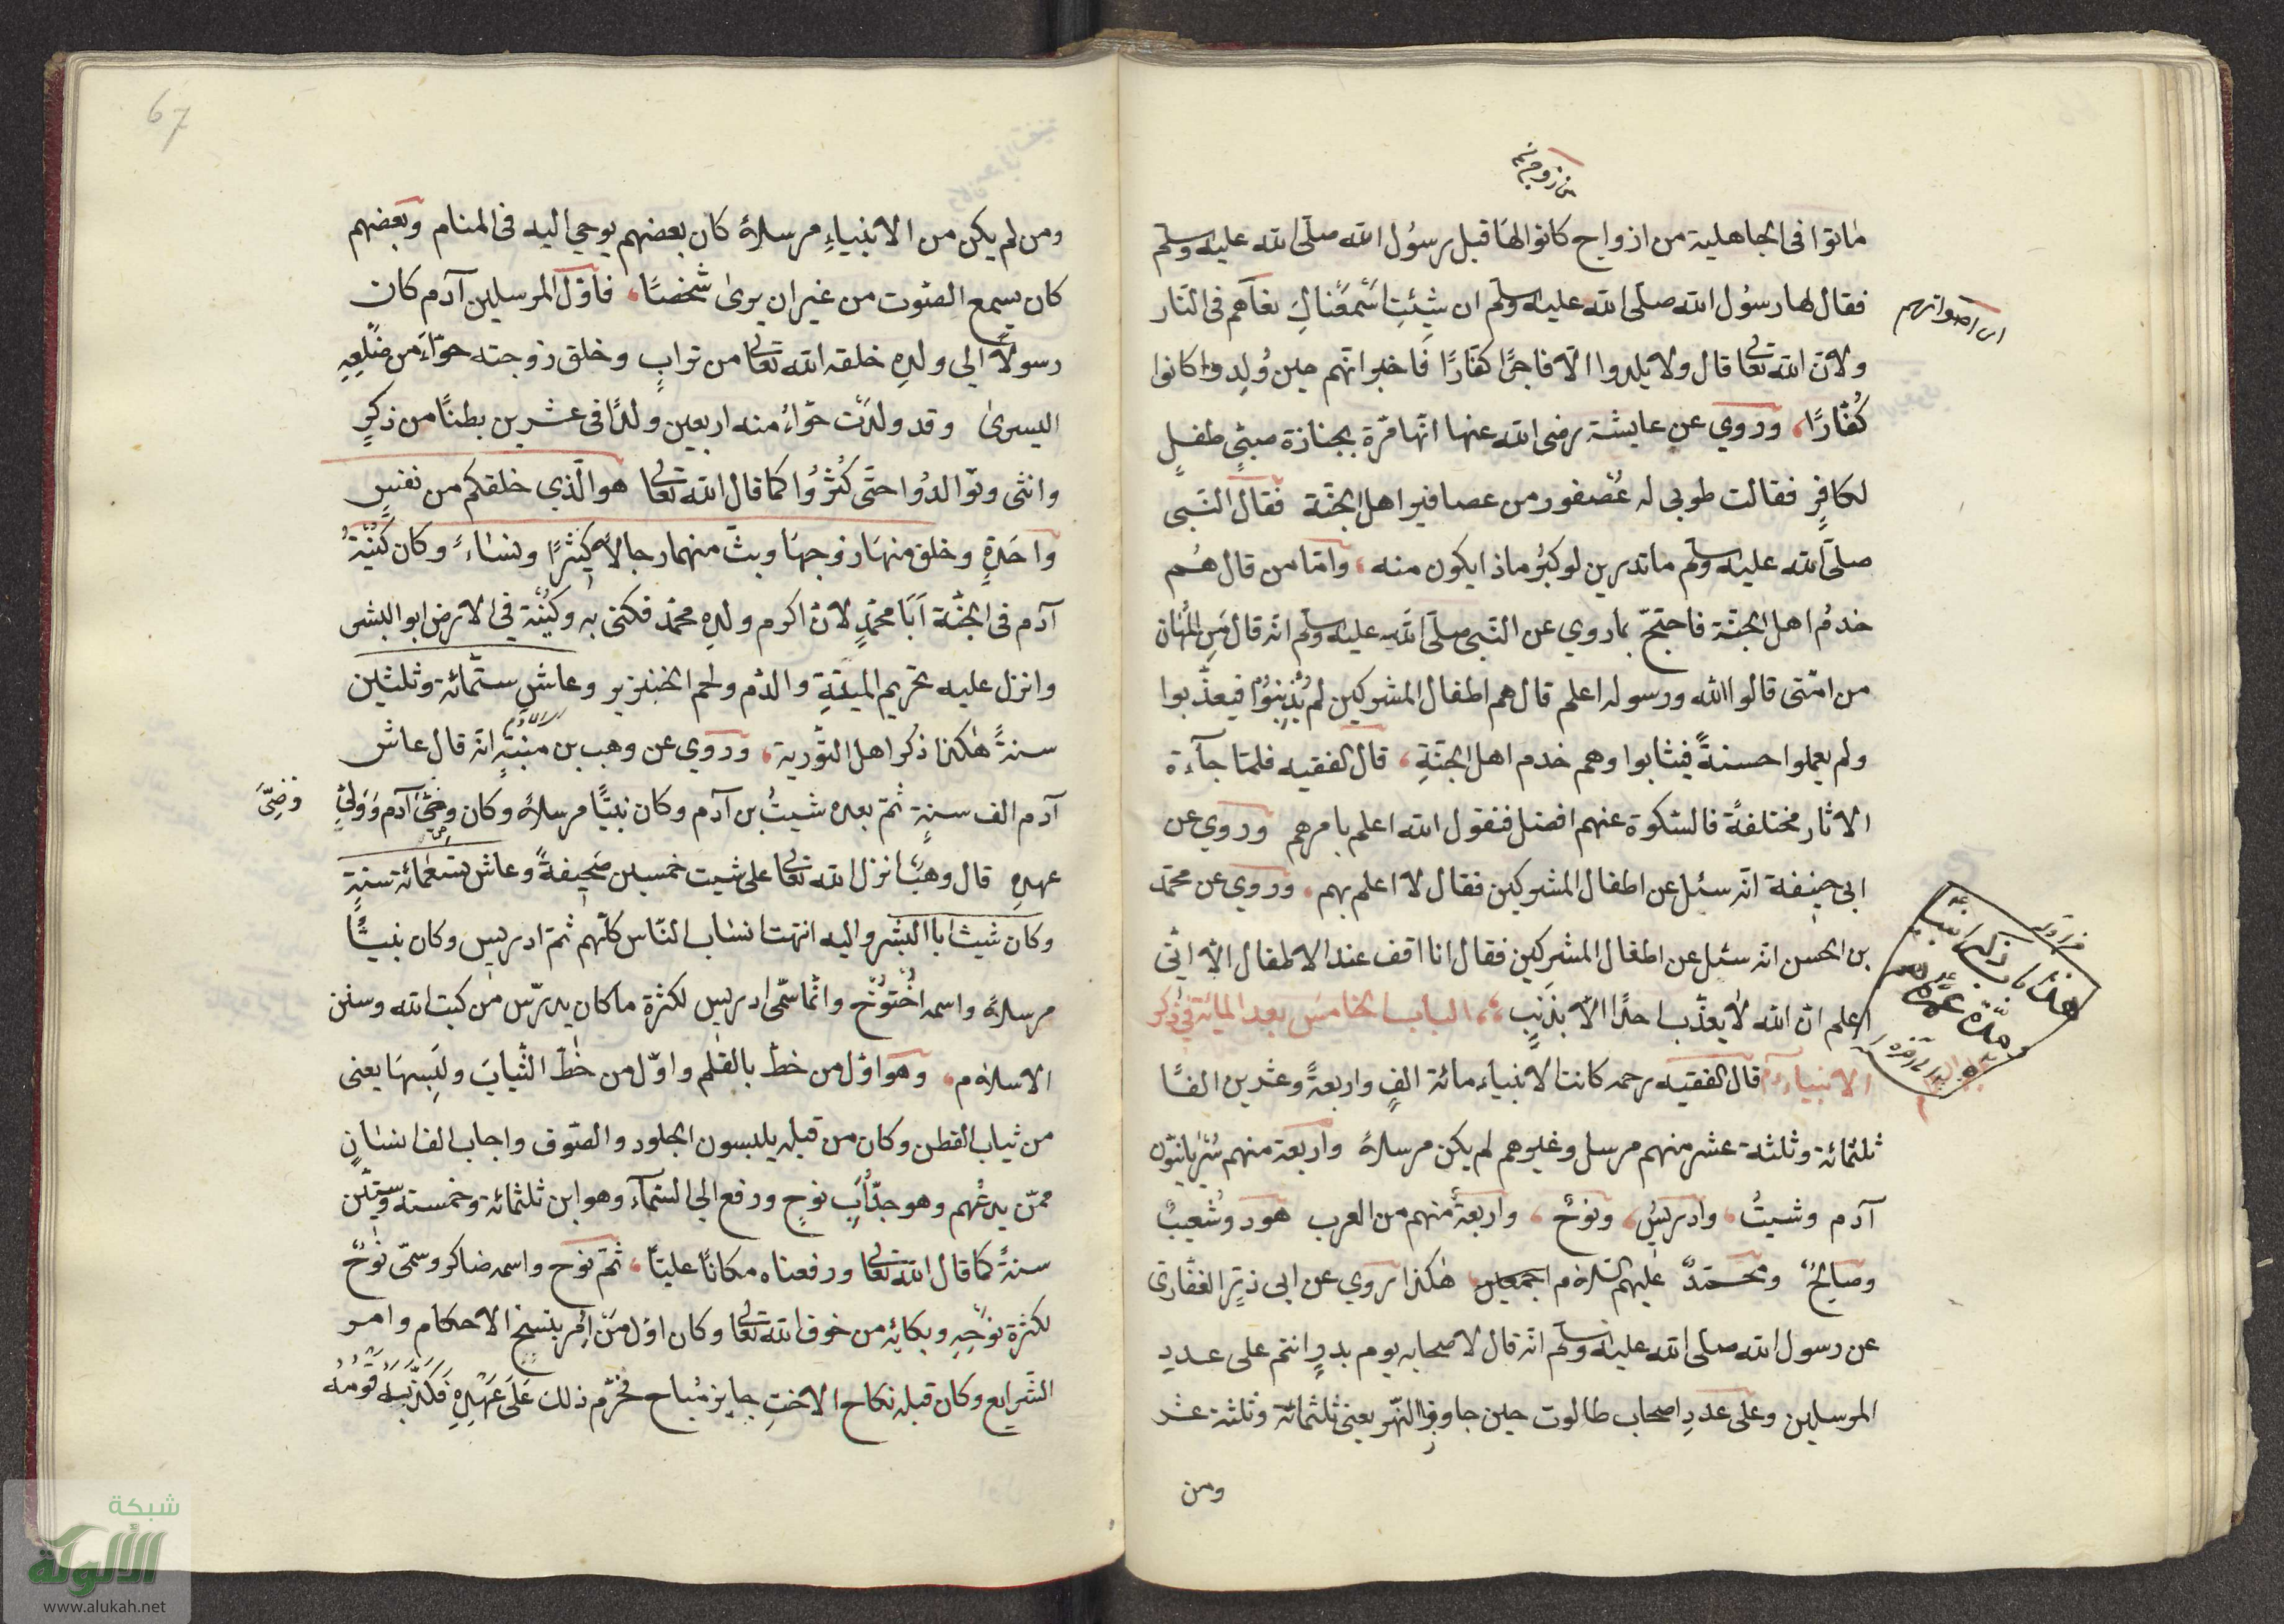 من زوجتهم
ماتوا فى الجاهلية من ازواج كانوا لها قبل رسول الله صلى الله عليه وسلم
فقال لها رسول الله صلى الله عليه وسلم ان شئت اسمعناك نغآهم فى النار
اى اصواتهم
ولان الله تعالى قال ولا يلدوا الا فاجرًا كفارًا فاخبر انهم حين وُلِدوا كانوا
كُفّارًا، وروي عن عايشة رضى الله عنها انها مرّة بجنازة صبىٍّ طفلٍ
لكافرٍ فقالت طوبى له عُصفور من عصافير اهل الجنّة فقال النبى
صلى الله عليه وسلم ما تدرين لو كبُر ماذا يكون منه، وامّا من قال هُم
خدمُ اهل الجنّة فاحتجّ بماروي عن النبى صلى الله عليه وسلم انه قال مَنِ اللّهان
من امّتى قالوا الله ورسوله اعلم قال هم اطفال المشركين لم يُذْنِبُوْا فيعذّبوا
ولم يعملوا حسنةً فيثابوا وهم خدم اهل الجنّةِ، قال الفقيه فلمّا جآءة
الاثار مختلفةً فالسّكوة عنهم افضل فنقول الله اعلم بامرهم وروي عن
ابى حنيفة انه سئل عن اطفال المشركين فقال لا اعلم بهم، وروي عن محمّد
بن الحسن انه سئل عن اطفال المشركين فقال انا اقف عند الاطفال الّا انّى
اعلم انّ الله لا يعذّب احدًا الّا بذنبٍ، الباب الخامسَ بعد المائة فى ذكر
الانبياء قال الفقيه رحمه كانت الانبياء مائة الفٍ واربعةً وعشرين الفًا
ثلثمائة وثلثة عشر منهم مرسل وغيرهم لم يكن مرسلاً واربعة منهم سُرْيانيّون
آدم وشيثُ، وادريسُ، ونوحٌ، واربعةٌ منهم من العرب هود وشُعيبٌ
وصالحٌ ومحمّدٌ عليهم السّلام اجمعين، هكذا روي عن ابى ذرّ الغفّارىّ
عن رسول الله صلى الله عليه وسلم انه قال لاصحابه يوم بدرٍ انتم على عددِ
المرسلين وعلى عددِ اصحاب طالوت حين جاوزوا النّهر يعنى ثلثمائة وثلثة عشر
ومن
67
ومن لم يكن من الانبياء مرسلاً كان بعضهم يوحى اليه فى المنام وبعضهم
كان يسمع الصّوت من غير ان يرىٰ شخصًا، فاوّل المرسلين آدم كان
رسولاً الى ولده خلقه الله تعالى من ترابٍ وخلق زوجته حوّاءَ من ضلعِهِ
اليسرىٰ وقد ولدت حوّاءُ منه اربعين ولدًا فى عشرين بطنًا من ذكرٍ
وانثى وتوالدُوا حتّى كَثُرُوا كما قال الله تعالى هو الّذي خلقكم من نفسٍ
واحدةٍ وخلق منها زوجها وبثّ منهما رجالاً كثيرًا ونساءً وكان كُنْيَةُ
آدم فى الجنّة اَبَا محمّدٍ لانّ اكرم ولده محمّد فكنى به وكُنْيَة فى الارض ابو البشر
وانزل عليه تحريم الميتةِ والدّم ولحم الخنزير وعاش ستّمائة وثلثين
سنةً هكذا ذكر اهل التّورية، وروي عن وهب بن منبّةٍ انّه قال عاش
آدم الف سنةٍ ثمّ بعده شيثُ بن آدم وكان نبيّا مرسلاً وكان وصىّ آدم وَوَلىّ
وَصِىَّ
عهده قال وهبٌ انزل الله تعالى على شيث خمسين صحيفةً وعاش تسعمائة سنةٍ
وكان شيث ابا البشر واليه انتهت انساب النّاس كلّهم ثمّ ادريس وكان نبيّا
مرسلاً واسمه اخْنُوْخ وانّما سمّى ادريس لكثرة ما كان يدرّس من كتب الله وسنن
الاسلام، وهو اوّل من خطّ بالقلم واوّل من خطّ الثّيابَ ولَبِسها يعنى
من ثياب القطن وكان من قبله يلبسون الجلود والصّوف واجاب الف انسانٍ
ممّن يدعُهم وهو جدّ اَبِ نوحٍ ورفع الى السّمآء وهو ابن ثلثمائة وخمسة وستّين
سنةً كما قال الله تعالى ورفعناه مكانًا عليًّا، ثمّ نوح واسمه ضاكر وسمّى نُوحٌ
لكثرة نوحِهِ وبكائِه من خوف الله تعالى وكان اوّل مَن اُمِر بنسخ الاحكام وامر
الشّرايع وكان قبله نكاح الاختِ جايز مُباح فحُرّم ذلك عَلَى عَهْدِهِ فَكَذَّبَهُ قَوْمُهُ
شبكة
الألوكة
www.alukah.net